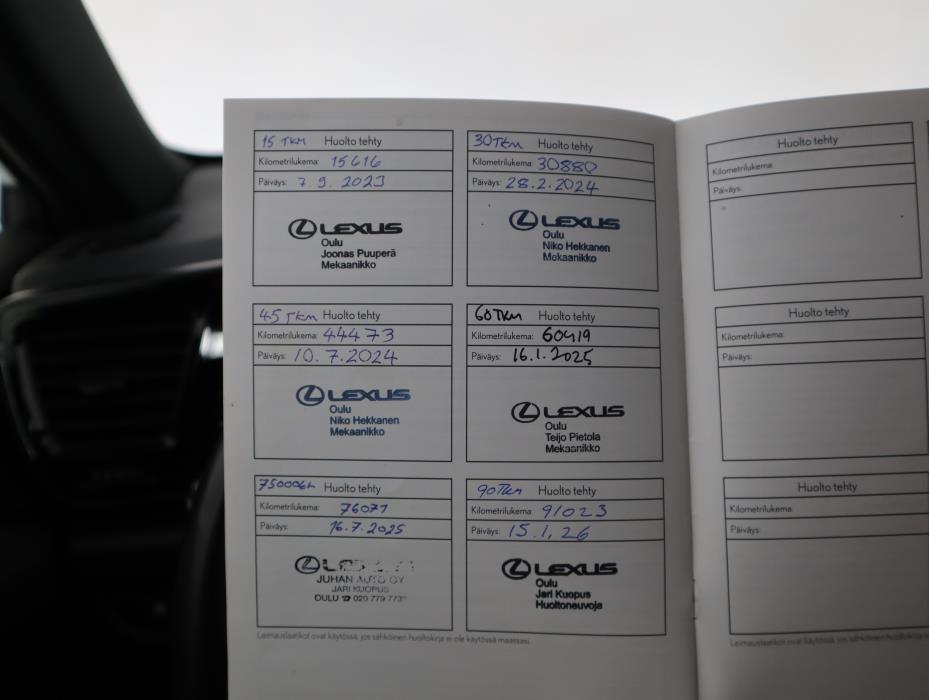 15 TKM Huolto tehty
Kilometrilukema: 15616
Päiväys: 7.9. 2023
LEXUS
Oulu
Joonas Puuperä
Mekaanikko
30TKm Huolto tehty
Kilometrilukema: 30880
Päiväys: 28.2.2024
LEXUS
Oulu
Niko Hekkanen
Mekaanikko
45TKm Huolto tehty
Kilometrilukema: 44473
Päiväys: 10.7.2024
LEXUS
Oulu
Niko Hekkanen
Mekaanikko
60TKm Huolto tehty
Kilometrilukema: 60419
Päiväys: 16.1.2025
LEXUS
Oulu
Teijo Pietola
Mekaanikko
Huolto tehty
Kilometrilukema: 76071
Päiväys: 16.7.2025
JUHAN AUTO OY
JARI KUOPUS
OULU ☎ 020 779
90TKm Huolto tehty
Kilometrilukema: 91023
Päiväys: 15.1, 26
LEXUS
Oulu
Jari Kuopus
Huoltoneuvoja
Leimauslaatikot ovat käytössä, jos sähköinen huoltokirja ei ole käytössä maassasi.
Huolto tehty
Kilometrilukema:
Päiväys:
Huolto tehty
Kilometrilukema:
Päiväys:
Huolto tehty
Kilometrilukema:
Päiväys:
Leimauslaatikot ovat käytössä, jos sähköinen huoltokirja ei ole käytössä